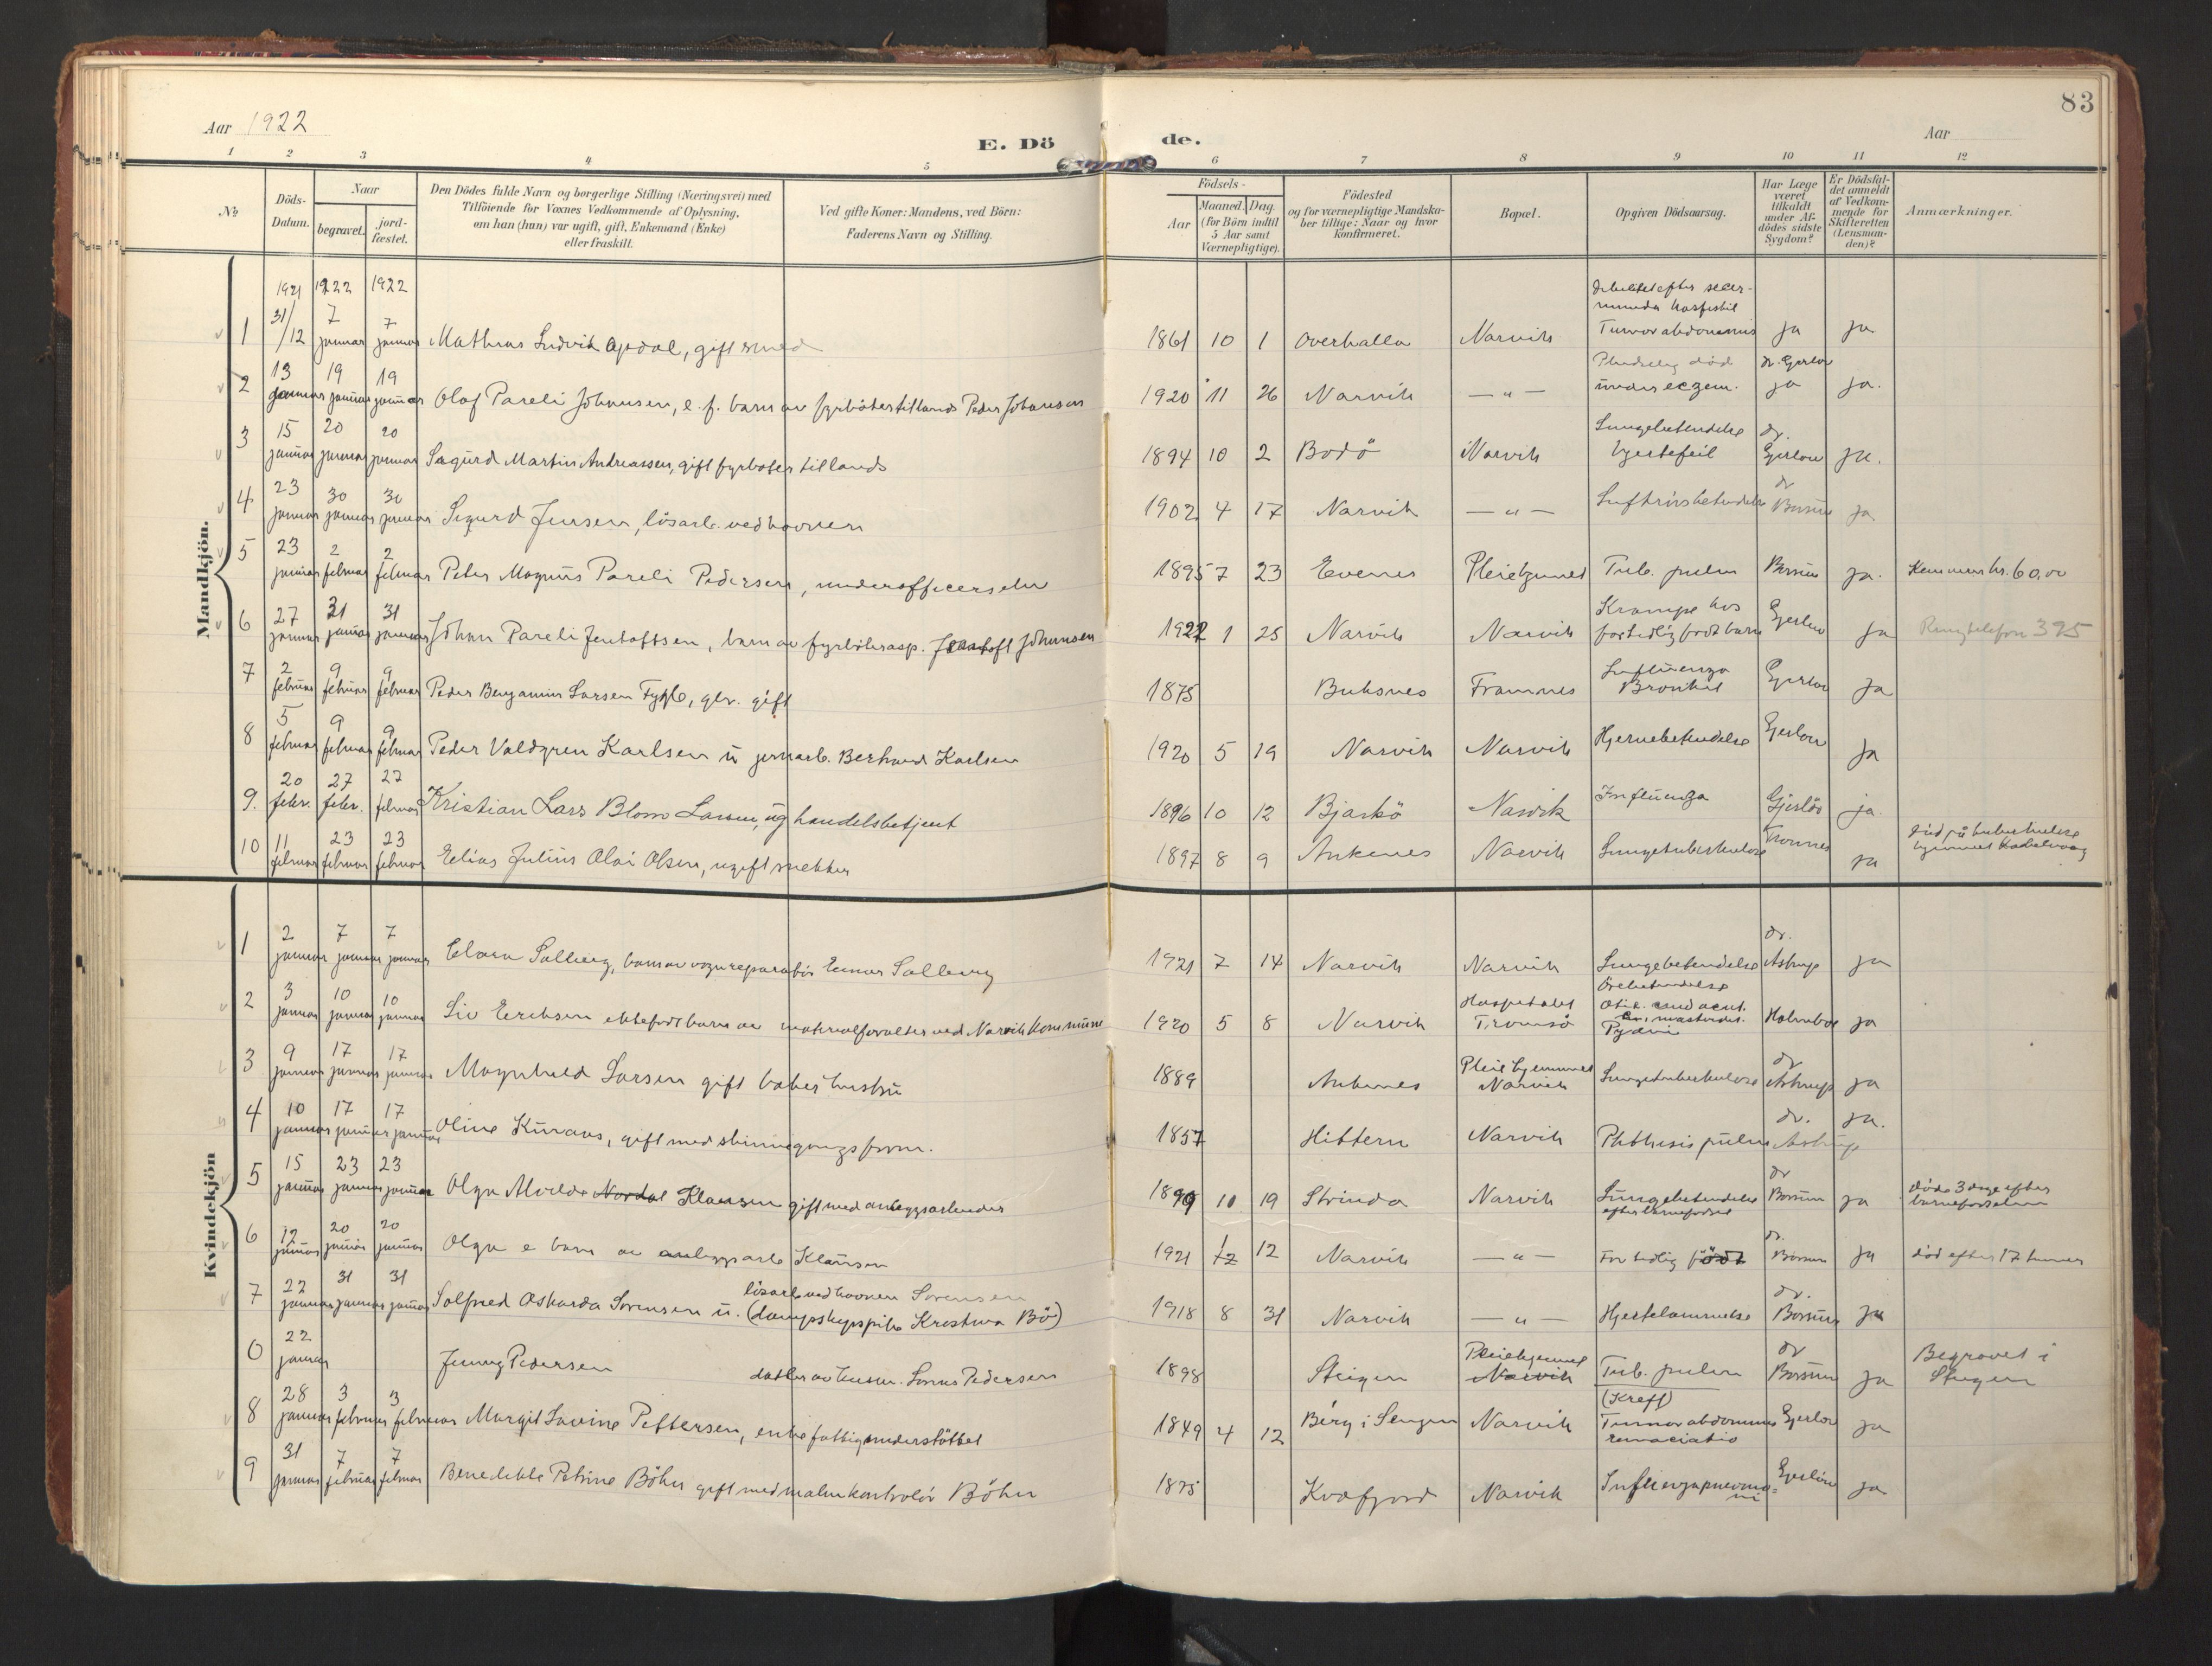 83
Aar 1922
E. Döde.
Aar
1 2 3 4 5 6 7 8 9 10 11 12
No
Döds-Datum.
Naar
begravet.
jord-fæstet.
Den Dödes fulde Navn og borgerlige Stilling (Næringsvei) med
Tilföiende for Voxnes Vedkommende af Oplysning,
om han (hun) var ugift, gift, Enkemand (Enke)
eller fraskilt.
Ved gifte Koner: Mandens, ved Börn:
Faderens Navn og Stilling.
Födsels-
Aar
Maaned. Dag
(for Börn indtil
5 Aar samt
Værnepligtige).
Födested
og for værnepligtige Mandska-
ber tillige: Naar og hvor
konfirmeret.
Bopæl.
Opgiven Dödsaarsag.
Har Læge
været
tilkaldt
under Af-
dödes sidste
Sygdom?
Er Dödsfal-
det anmeldt
af Vedkom-
mende for
Skifteretten
(Lensman-
den)?
Anmærkninger.
Mandkjön.
1921 1922 1922
1 31/12 7 januar 7 januar Mathias Ludvik Opdal, gift smed 1861 10 1 Overhalla Narvik Tumor abdominis ja ja
2 13 januar 19 januar 19 januar Olaf Pareli Johansen, e. f. barn av fyrböter tillands Peder Johansen 1920 11 26 Narvik — " — Pludselig död under eczem. dr. Gjerlöv ja ja.
3 15 januar 20 januar 20 januar Sigurd Martin Andreassen, gift fyrböter tillands 1894 10 2 Bodö Narvik Lungebetendelse hjertefeil dr. Gjerlow ja.
4 23 januar 30 januar 30 januar Sigurd Jensen, lösarb. ved havnen 1902 4 17 Narvik — " — Luftrörsbetendelse dr Borsum ja
5 23 januar 2 februar 2 februar Peter Magnus Pareli Pedersen, underofficerselev 1895 7 23 Evenes Pleiehjemmet Tub. pulm Borsum ja. Kommun kr. 60,00
6 27 januar 31 januar 31 januar Johan Pareli Jentoftsen, barn av fyrböterasp. Jentoft Johansen 1922 1 25 Narvik Narvik Krampe hos fortidlig födt barn Gjerlow ja Ring telefon 395
7 2 februar 9 februar 9 februar Peder Benjamin Larsen gift 1875 Buksnes Framnes Influenza Bronkit Gjerlow ja
8 5 februar 9 februar 9 februar Peder Valdgren Karlsen u jernarb. Berhard Karlsen 1920 5 19 Narvik Narvik Hjernebetendelse Gjerlow ja
9. 20 febr. 27 febr. 27 februar Kristian Lars Blom Larsen, ug handelsbetjent 1896 10 12 Bjarkö Narvik Influenza Gjerlöv ja.
10 11 februar 23 februar 23 februar Elias Julius Olai Olsen, ugift snekker 1897 8 9 Ankenes Narvik Lungetuberkulose Tronnes ja död på tuberkulose hjemmet Kabelvaag
Kvindekjön
1 2 januar 7 januar 7 januar Elara Solberg, barn av vognreparatör Einar Solberg 1921 7 14 Narvik Narvik Lungebetendelse dr. Astrup ja
2 3 januar 10 januar 10 januar Liv Eriksen ektefödt barn av materialforvalter ved Narvik kommune 1920 5 8 Narvik Hospitalet Tromsö Örebetendelse Otit. med acut. mastoidit. Pyæmi Holmboe ja
3 9 januar 17 januar 17 januar Magnhild Larsen gift bakerhustru 1889 Ankenes Pleiehjemmet Narvik Lungetuberkulose dr Astrup ja
4 10 januar 17 januar 17 januar Oline Kuraas, gift med skinnegangsform. 1857 Hittern Narvik Phthisis pulm dr. Astrup ja.
5 15 januar 23 januar 23 januar Olga Alvilde Nordal Klausen gift med anleggsarbeider 1890 10 19 Strinda Narvik Lungebetendelse efter barnefödsel dr Borsum ja döde 3 dage efter barnefödselen
6 12 januar 20 januar 20 januar Olga e barn av anleggsarb Klausen 1921 12 12 Narvik — " — For tidlig födt dr. Borsum ja död efter 17 timer
7 22 januar 31 januar 31 januar Solfrid Oskarda Sörensen u. lösarb. ved havnen Sörensen (dampskipspike Kristina Bö) 1918 8 31 Narvik — " — Hjertelammelse dr. Borsum ja
0 22 januar Jenny Pedersen datter av Pedersen 1898 Steigen Pleiehjemmet Narvik Tub. pulm dr Borsum ja Begravet i Steigen
8 28 januar 3 februar 3 februar Margit Lovine Pettersen, enke fattigunderstöttet 1849 4 12 Berg i Senjen Narvik (Kreft) Tumor abdominis emaciatio Gjerlow ja
9 31 januar 7 februar 7 februar Benedikte Petrine Böhn gift med malmkontrolör Böhn 1875 Kvæfjord Narvik Influenzapneumoni Gjerlow ja